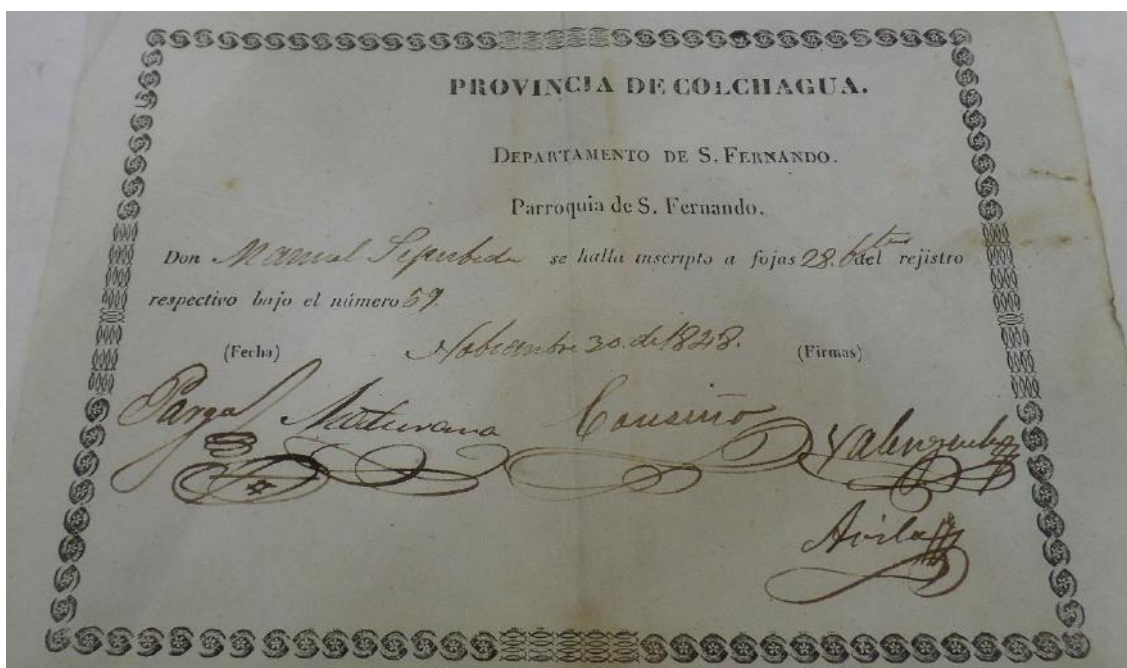 PROVINCIA DE COLCHAGUA.
DEPARTAMENTO DE S. FERNANDO.
Parroquia de S. Fernando.
Don Manuel Sepulbeda se halla inscripto a fojas 28. bta del rejistro
respectivo bajo el número 59.
(Fecha) Nobiembre 30. de 1848. (Firmas)
Parga Maturana Cousiño Valenzuela
Avila